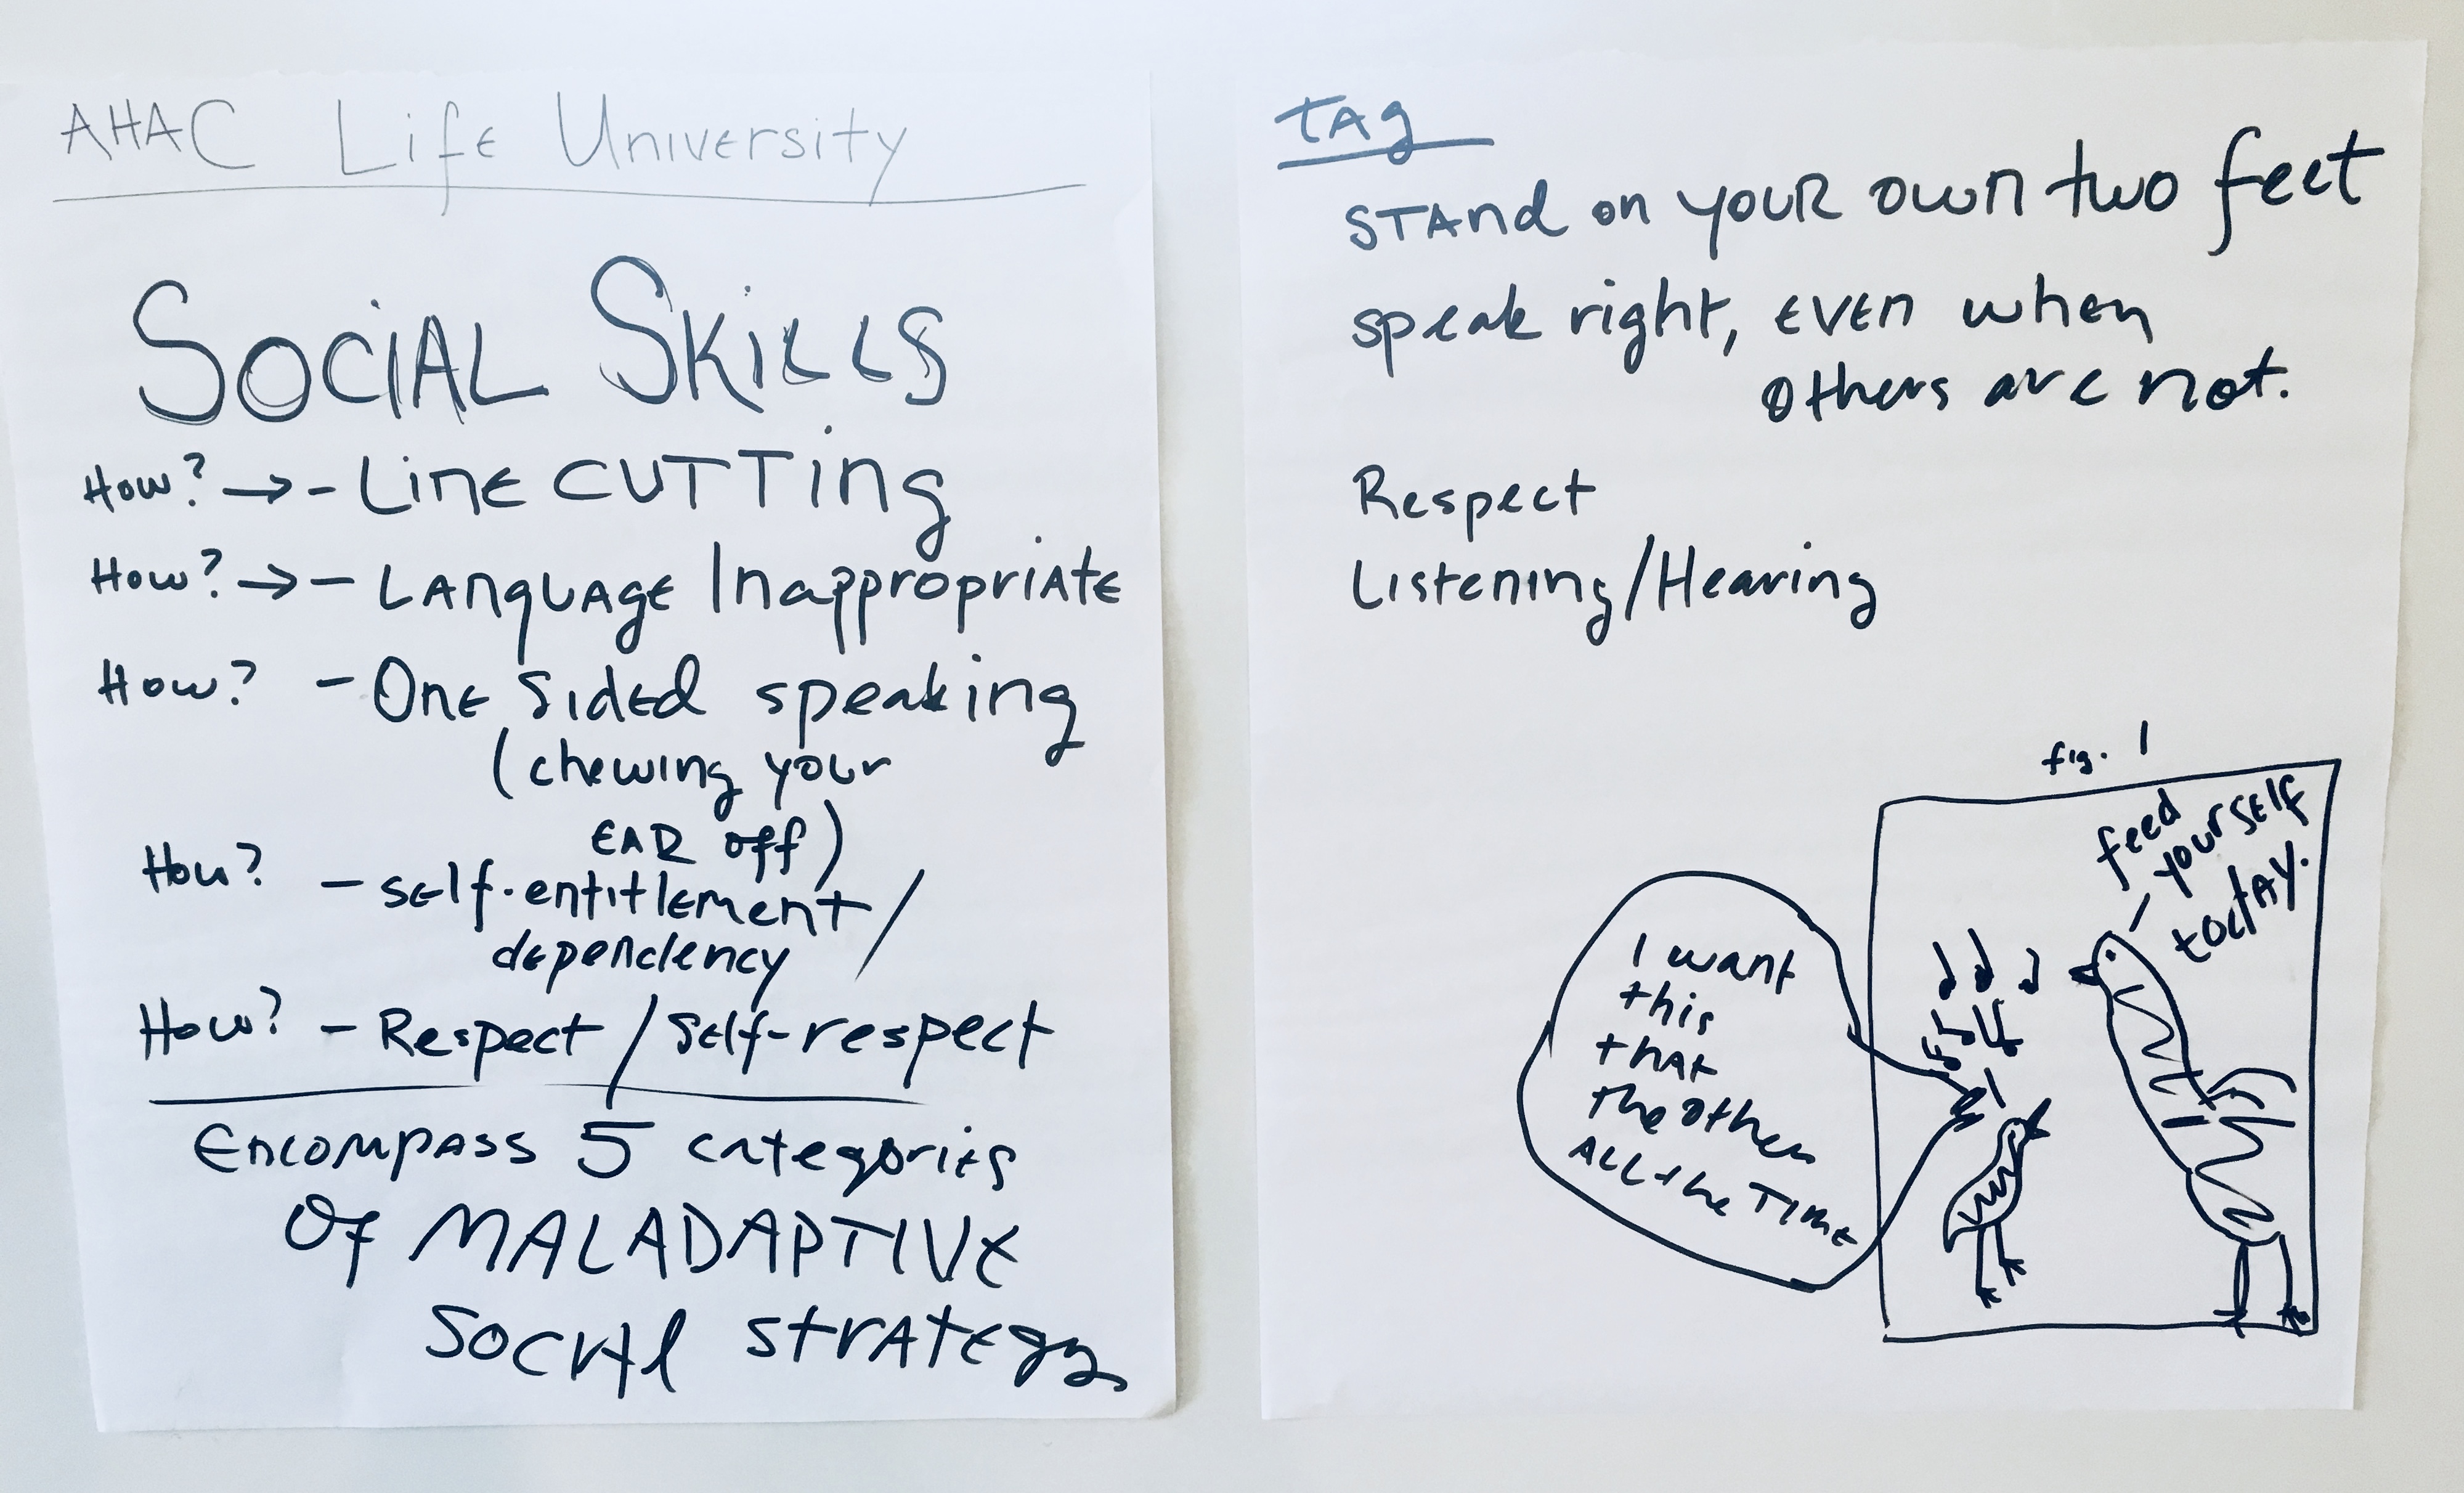 AHAC Life University
SOCIAL SKILLS
How? → - LINE CUTTing
How? → - LANguAgE InappropriAtE
How? - OnE Sided speaking
(chewing your
EAR off)
How? - SElf-entitlement /
dependency
How? - Respect / SElf-respect
Encompass 5 categories
Of MALADAPTIVE
Social strategy
tAg
STAnd on your own two feet
speak right, even when
others are not.
Respect
Listening/Hearing
fig. 1
feed
yourself
today.
I want
this
that
the other
ALL the TIME